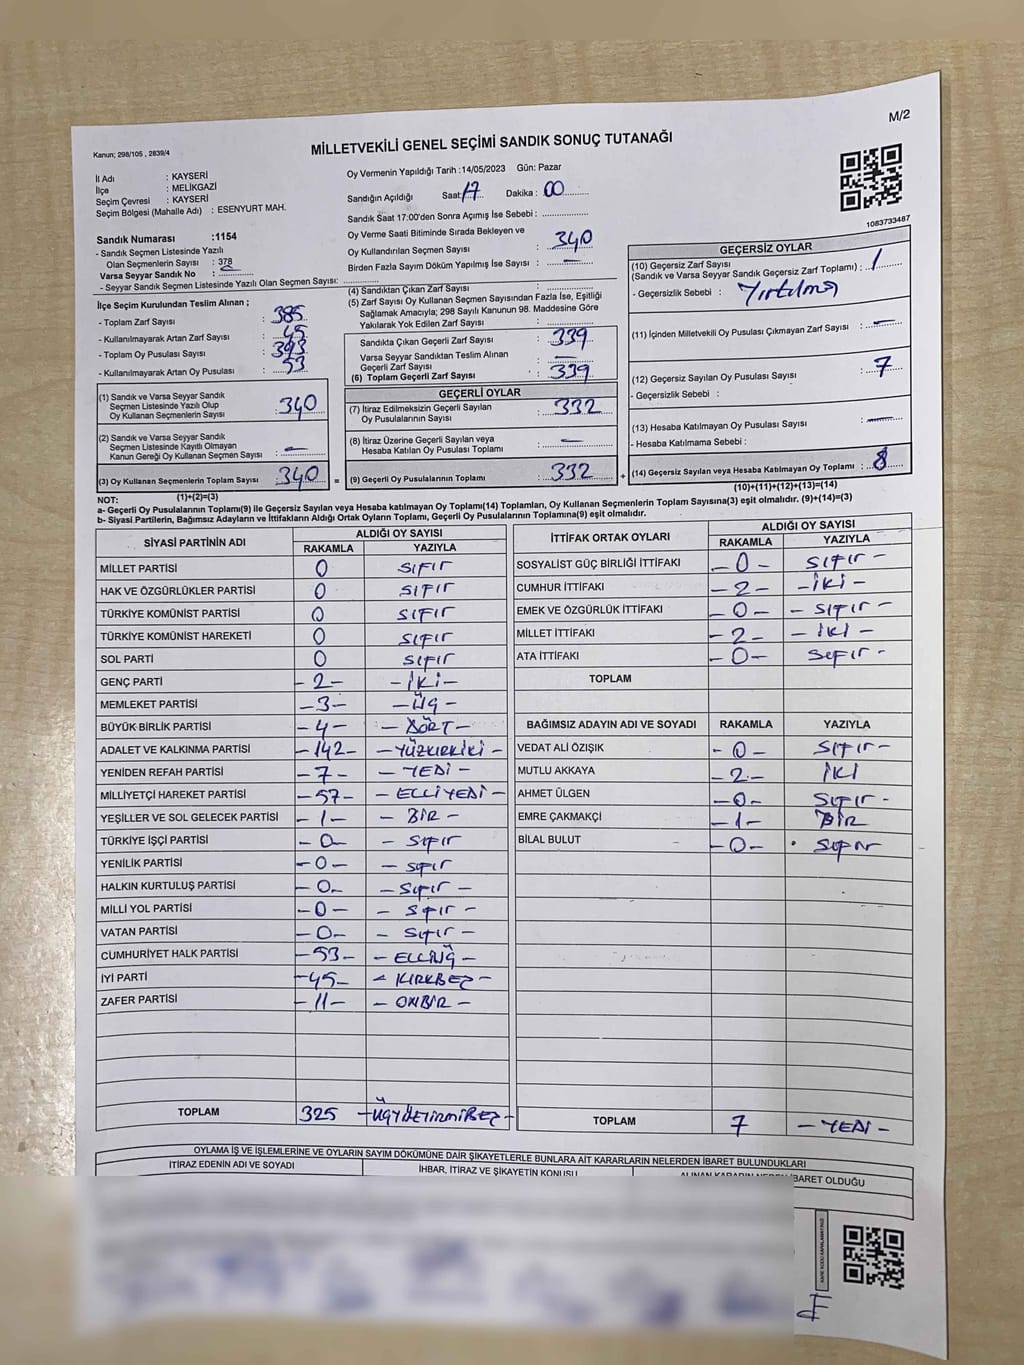 M/2
Kanun; 298/105 , 2839/4
MİLLETVEKİLİ GENEL SEÇİMİ SANDIK SONUÇ TUTANAĞI
İl Adı : KAYSERİ
İlçe : MELİKGAZİ
Seçim Çevresi : KAYSERİ
Seçim Bölgesi (Mahalle Adı) : ESENYURT MAH.
Sandık Numarası :1154
- Sandık Seçmen Listesinde Yazılı
Olan Seçmenlerin Sayısı : 378
Varsa Seyyar Sandık No :
- Seyyar Sandık Seçmen Listesinde Yazılı Olan Seçmen Sayısı:
Oy Vermenin Yapıldığı Tarih :14/05/2023 Gün: Pazar
Sandığın Açıldığı Saat: 17 Dakika : 00
Sandık Saat 17:00'den Sonra Açımış İse Sebebi :
Oy Verme Saati Bitiminde Sırada Bekleyen ve
Oy Kullandırılan Seçmen Sayısı : 340
Birden Fazla Sayım Döküm Yapılmış İse Sayısı : —
1083733487
İlçe Seçim Kurulundan Teslim Alınan ;
- Toplam Zarf Sayısı : 385
- Kullanılmayarak Artan Zarf Sayısı : 45
- Toplam Oy Pusulası Sayısı : 393
- Kullanılmayarak Artan Oy Pusulası : 53
(1) Sandık ve Varsa Seyyar Sandık
Seçmen Listesinde Yazılı Olup
Oy Kullanan Seçmenlerin Sayısı : 340
(2) Sandık ve Varsa Seyyar Sandık
Seçmen Listesinde Kayıtlı Olmayan
Kanun Gereği Oy Kullanan Seçmen Sayısı : —
(3) Oy Kullanan Seçmenlerin Toplam Sayısı : 340
(1)+(2)=(3)
(4) Sandıktan Çıkan Zarf Sayısı :
(5) Zarf Sayısı Oy Kullanan Seçmen Sayısından Fazla İse, Eşitliği
Sağlamak Amacıyla; 298 Sayılı Kanunun 98. Maddesine Göre
Yakılarak Yok Edilen Zarf Sayısı :
Sandıkta Çıkan Geçerli Zarf Sayısı : 339
Varsa Seyyar Sandıktan Teslim Alınan
Geçerli Zarf Sayısı : —
(6) Toplam Geçerli Zarf Sayısı : 339
GEÇERLİ OYLAR
(7) İtiraz Edilmeksizin Geçerli Sayılan
Oy Pusulalarının Sayısı : 332
(8) İtiraz Üzerine Geçerli Sayılan veya
Hesaba Katılan Oy Pusulası Toplamı : —
= (9) Geçerli Oy Pusulalarının Toplamı : 332
GEÇERSİZ OYLAR
(10) Geçersiz Zarf Sayısı
(Sandık ve Varsa Seyyar Sandık Geçersiz Zarf Toplamı) : 1
- Geçersizlik Sebebi : Yırtılma
(11) İçinden Milletvekili Oy Pusulası Çıkmayan Zarf Sayısı : —
(12) Geçersiz Sayılan Oy Pusulası Sayısı : 7
- Geçersizlik Sebebi :
(13) Hesaba Katılmayan Oy Pusulası Sayısı : —
- Hesaba Katılmama Sebebi :
+ (14) Geçersiz Sayılan veya Hesaba Katılmayan Oy Toplamı : 8
(10)+(11)+(12)+(13)=(14)
NOT:
a- Geçerli Oy Pusulalarının Toplamı(9) ile Geçersiz Sayılan veya Hesaba Katılmayan Oy Toplamı(14) Toplamları, Oy Kullanan Seçmenlerin Toplam Sayısına(3) eşit olmalıdır. (9)+(14)=(3)
b- Siyasi Partilerin, Bağımsız Adayların ve İttifakların Aldığı Ortak Oyların Toplamı, Geçerli Oy Pusulalarının Toplamına(9) eşit olmalıdır.
SİYASİ PARTİNİN ADI ALDIĞI OY SAYISI
RAKAMLA YAZIYLA
MİLLET PARTİSİ 0 SIFIR
HAK VE ÖZGÜRLÜKLER PARTİSİ 0 SIFIR
TÜRKİYE KOMÜNİST PARTİSİ 0 SIFIR
TÜRKİYE KOMÜNİST HAREKETİ 0 SIFIR
SOL PARTİ 0 SIFIR
GENÇ PARTİ -2- -İKİ-
MEMLEKET PARTİSİ -3- -ÜÇ-
BÜYÜK BİRLİK PARTİSİ -4- -DÖRT-
ADALET VE KALKINMA PARTİSİ -142- -YÜZKIRKİKİ-
YENİDEN REFAH PARTİSİ -7- -YEDİ-
MİLLİYETÇİ HAREKET PARTİSİ -57- -ELLİYEDİ-
YEŞİLLER VE SOL GELECEK PARTİSİ -1- -BİR-
TÜRKİYE İŞÇİ PARTİSİ -0- -SIFIR
YENİLİK PARTİSİ -0- -SIFIR
HALKIN KURTULUŞ PARTİSİ -0- -SIFIR-
MİLLİ YOL PARTİSİ -0- -SIFIR-
VATAN PARTİSİ -0- -SIFIR-
CUMHURİYET HALK PARTİSİ -53- -ELLİÜÇ-
İYİ PARTİ -45- -KIRKBEŞ-
ZAFER PARTİSİ -11- -ONBİR-
TOPLAM 325 -ÜÇYÜZYİRMİBEŞ-
İTTİFAK ORTAK OYLARI ALDIĞI OY SAYISI
RAKAMLA YAZIYLA
SOSYALİST GÜÇ BİRLİĞİ İTTİFAKI -0- SIFIR-
CUMHUR İTTİFAKI -2- -İKİ-
EMEK VE ÖZGÜRLÜK İTTİFAKI -0- -SIFIR-
MİLLET İTTİFAKI -2- -İKİ-
ATA İTTİFAKI -0- SIFIR-
TOPLAM
BAĞIMSIZ ADAYIN ADI VE SOYADI RAKAMLA YAZIYLA
VEDAT ALİ ÖZIŞIK -0- SIFIR-
MUTLU AKKAYA -2- İKİ
AHMET ÜLGEN -0- SIFIR-
EMRE ÇAKMAKÇİ -1- BİR
BİLAL BULUT -0- SIFIR
TOPLAM 7 -YEDİ-
OYLAMA İŞ VE İŞLEMLERİNE VE OYLARIN SAYIM DÖKÜMÜNE DAİR ŞİKAYETLERLE BUNLARA AİT KARARLARIN NELERDEN İBARET BULUNDUKLARI
İTİRAZ EDENİN ADI VE SOYADI İHBAR, İTİRAZ VE ŞİKAYETİN KONUSU ALINAN KARARIN NEDEN İBARET OLDUĞU